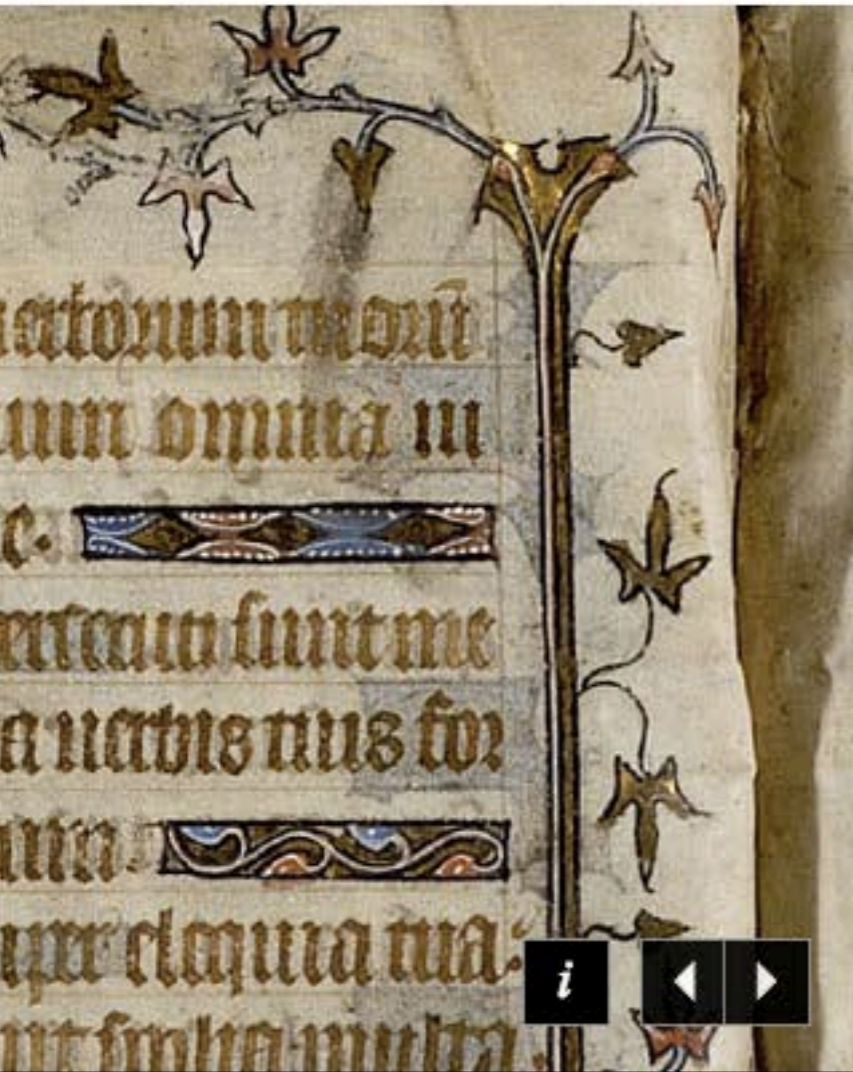 uerborum tuorū
num omnia iu
e.
ersecuti sunt me
a uerbis tuis for
um.
uper eloquia tua:
nit spolia multa.
i